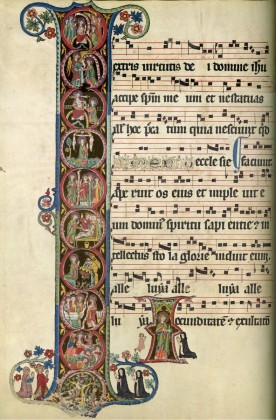 extris virtutis de i domine ihu
accipe spm me um et ne statuas
ill hoc pca tum quia nesciunt qd
eccle sie faciunt
Ape runt os eius et imple uit e
um domin spiritu sapi entie et in
tellectus sto la glorie induit eum
alle luya alle luya alle
lu ya ocunditate et exultatio